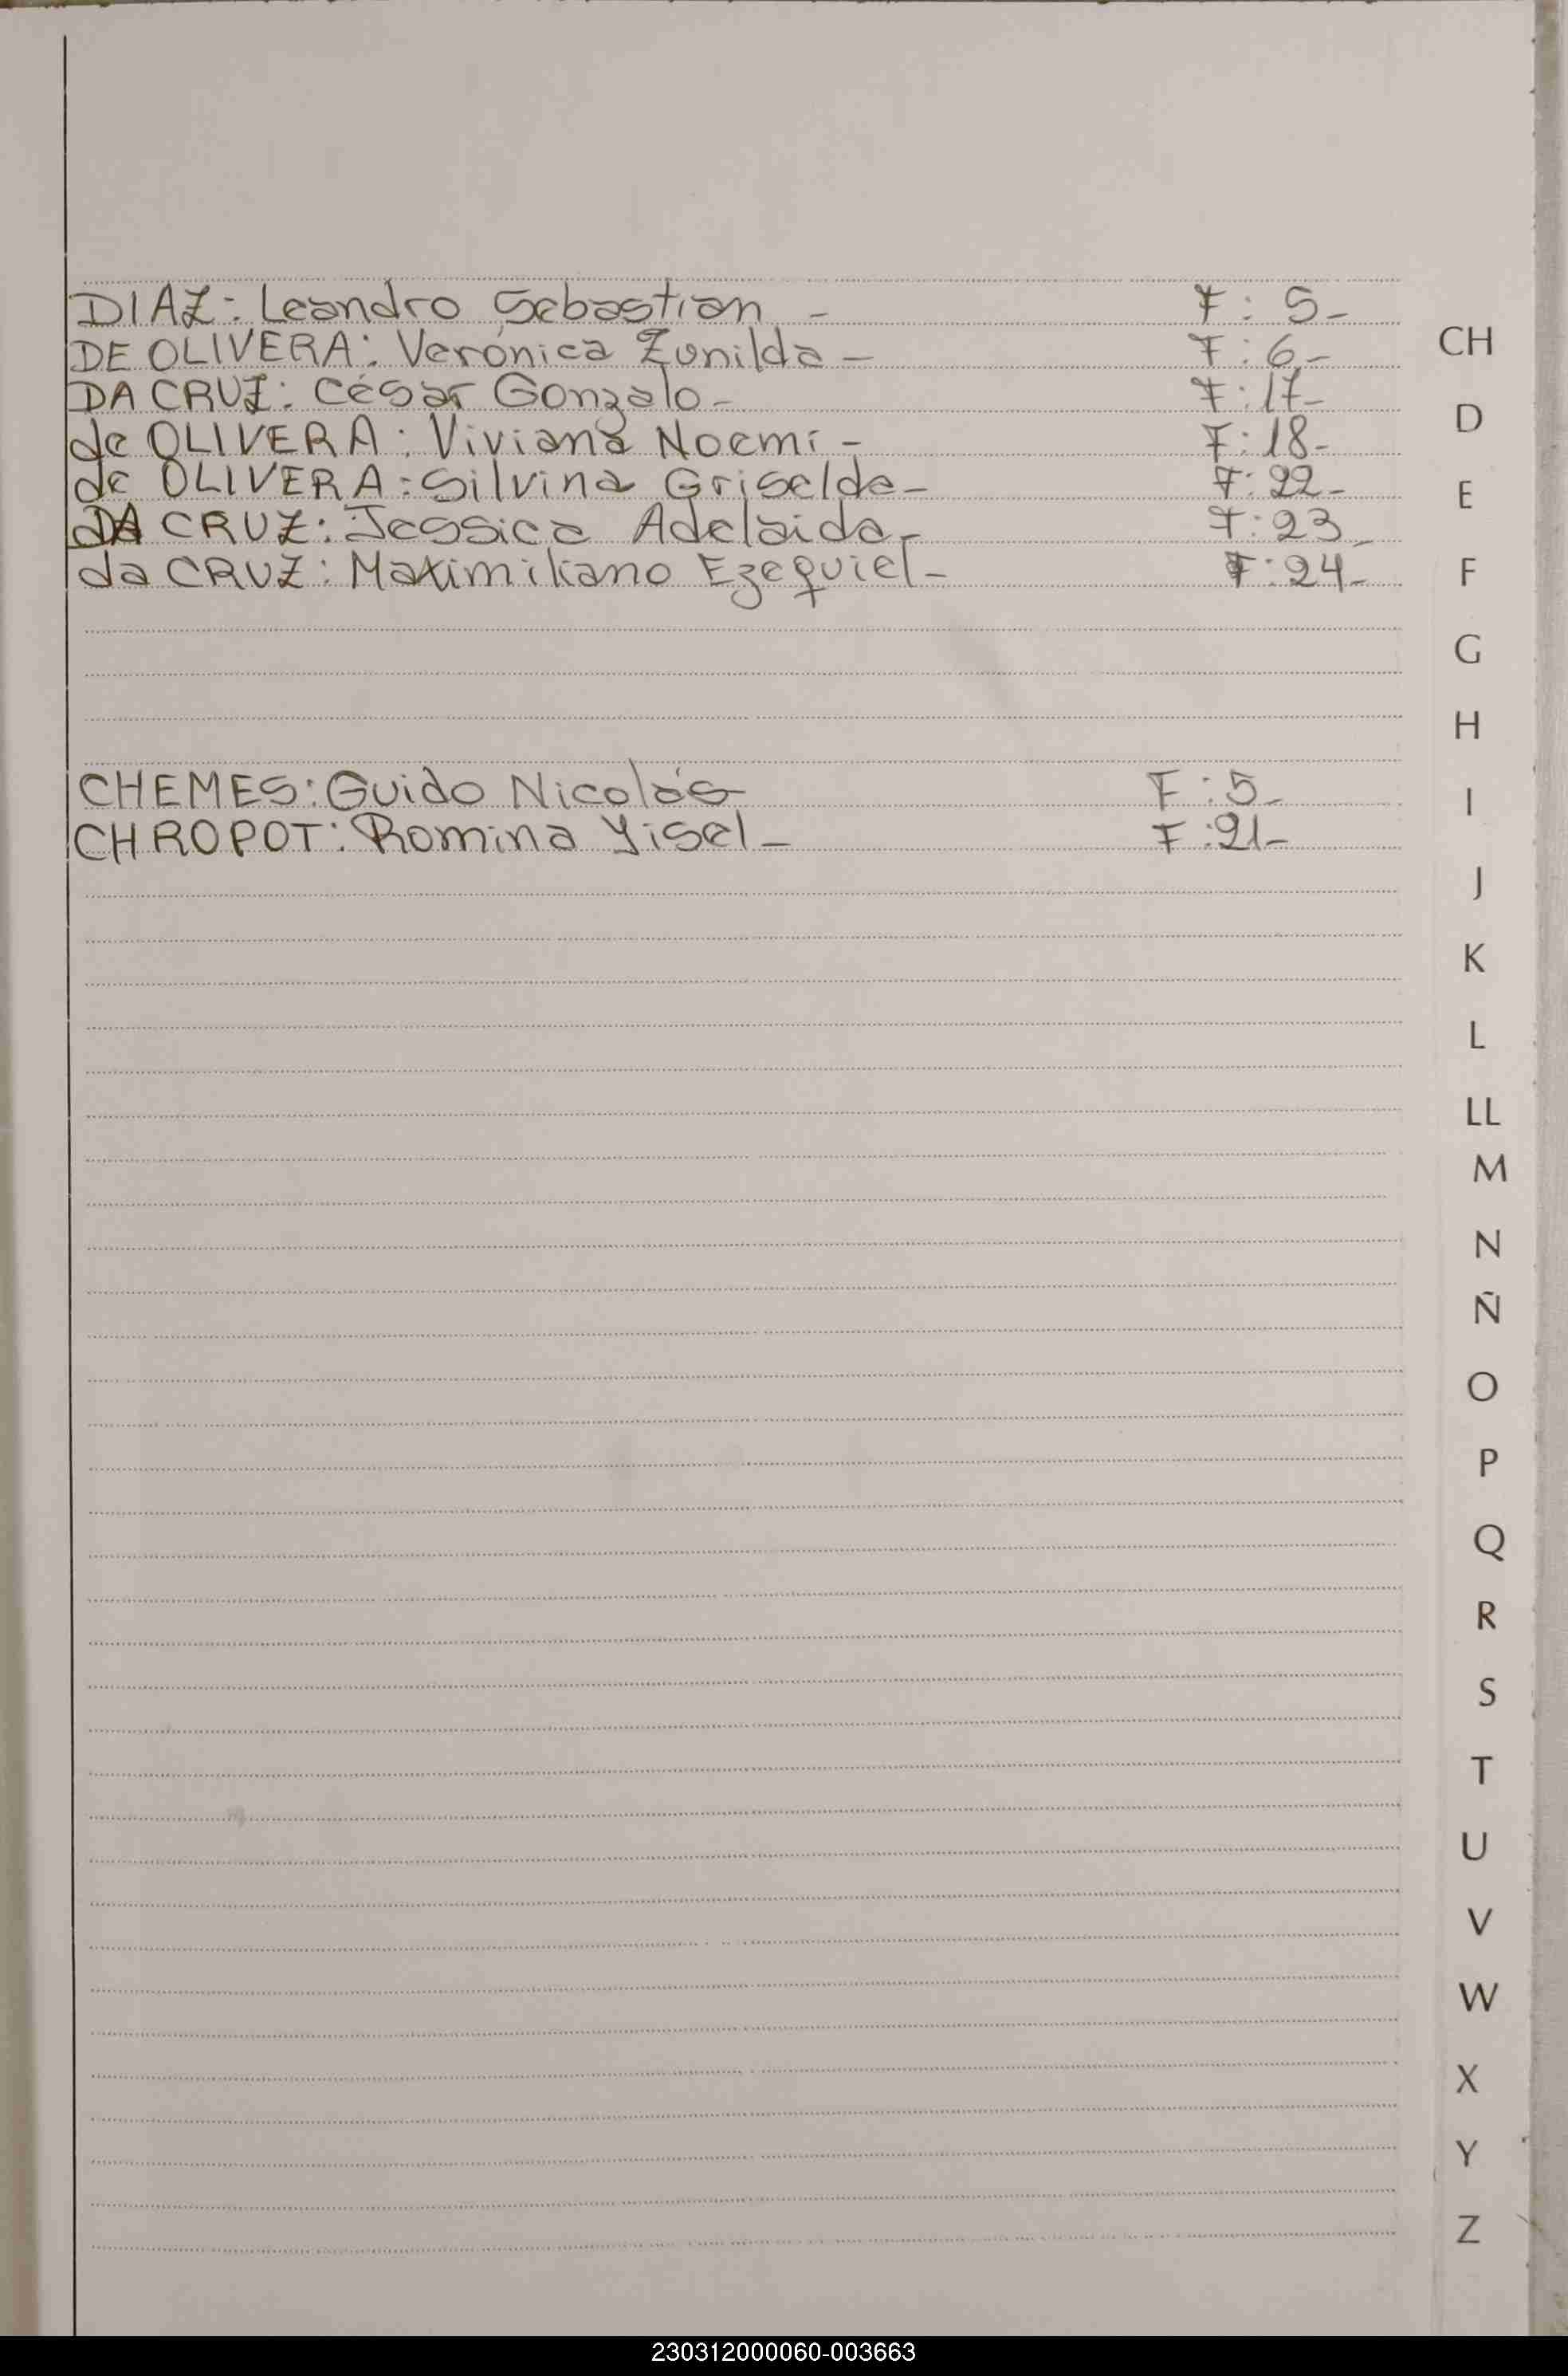 DIAZ: Leandro Sebastian - F: 5-
DE OLIVERA: Verónica Zunilda - F: 6-
DA CRUZ: César Gonzalo - F: 17-
de OLIVERA: Viviana Noemi - F: 18-
de OLIVERA: Silvina Griselda - F: 22-
DA CRUZ: Jessica Adelaida - F: 23-
da CRUZ: Maximiliano Ezequiel - F: 24-
CHEMES: Guido Nicolás F: 5-
CHROPOT: Romina Yisel - F: 21-
CH
D
E
F
G
H
I
J
K
L
LL
M
N
Ñ
O
P
Q
R
S
T
U
V
W
X
Y
Z
230312000060-003663